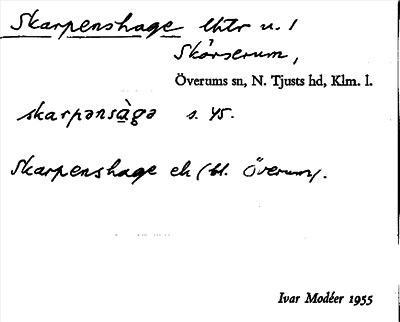 Skarpenshage lhtr u. /
Skörserum,
Överums sn, N. Tjusts hd, Klm. l.
skarpənsàgə s. 45.
Skarpenshage ek (bl. Överum).
Ivar Modéer 1955